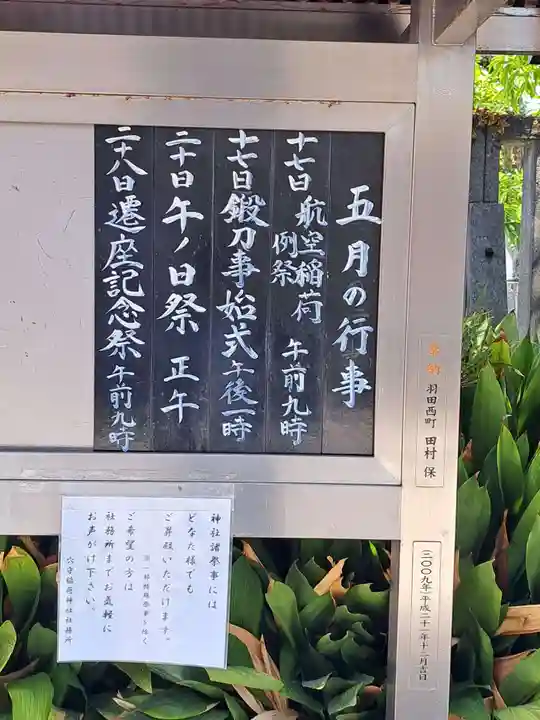 五月の行事
十七日 航空稲荷例祭 午前九時
十七日 鍛刀事始式 午後一時
二十日 午ノ日祭 正午
二十八日 遷座記念祭 午前九時
奉納 羽田西町 田村 保
(二〇〇九年)平成二十一年十二月吉日
神社諸祭事には
どなた様でも
ご昇殿いただけます。
ご希望の方は
社務所までお気軽に
お声がけ下さい。
穴守稲荷神社社務所